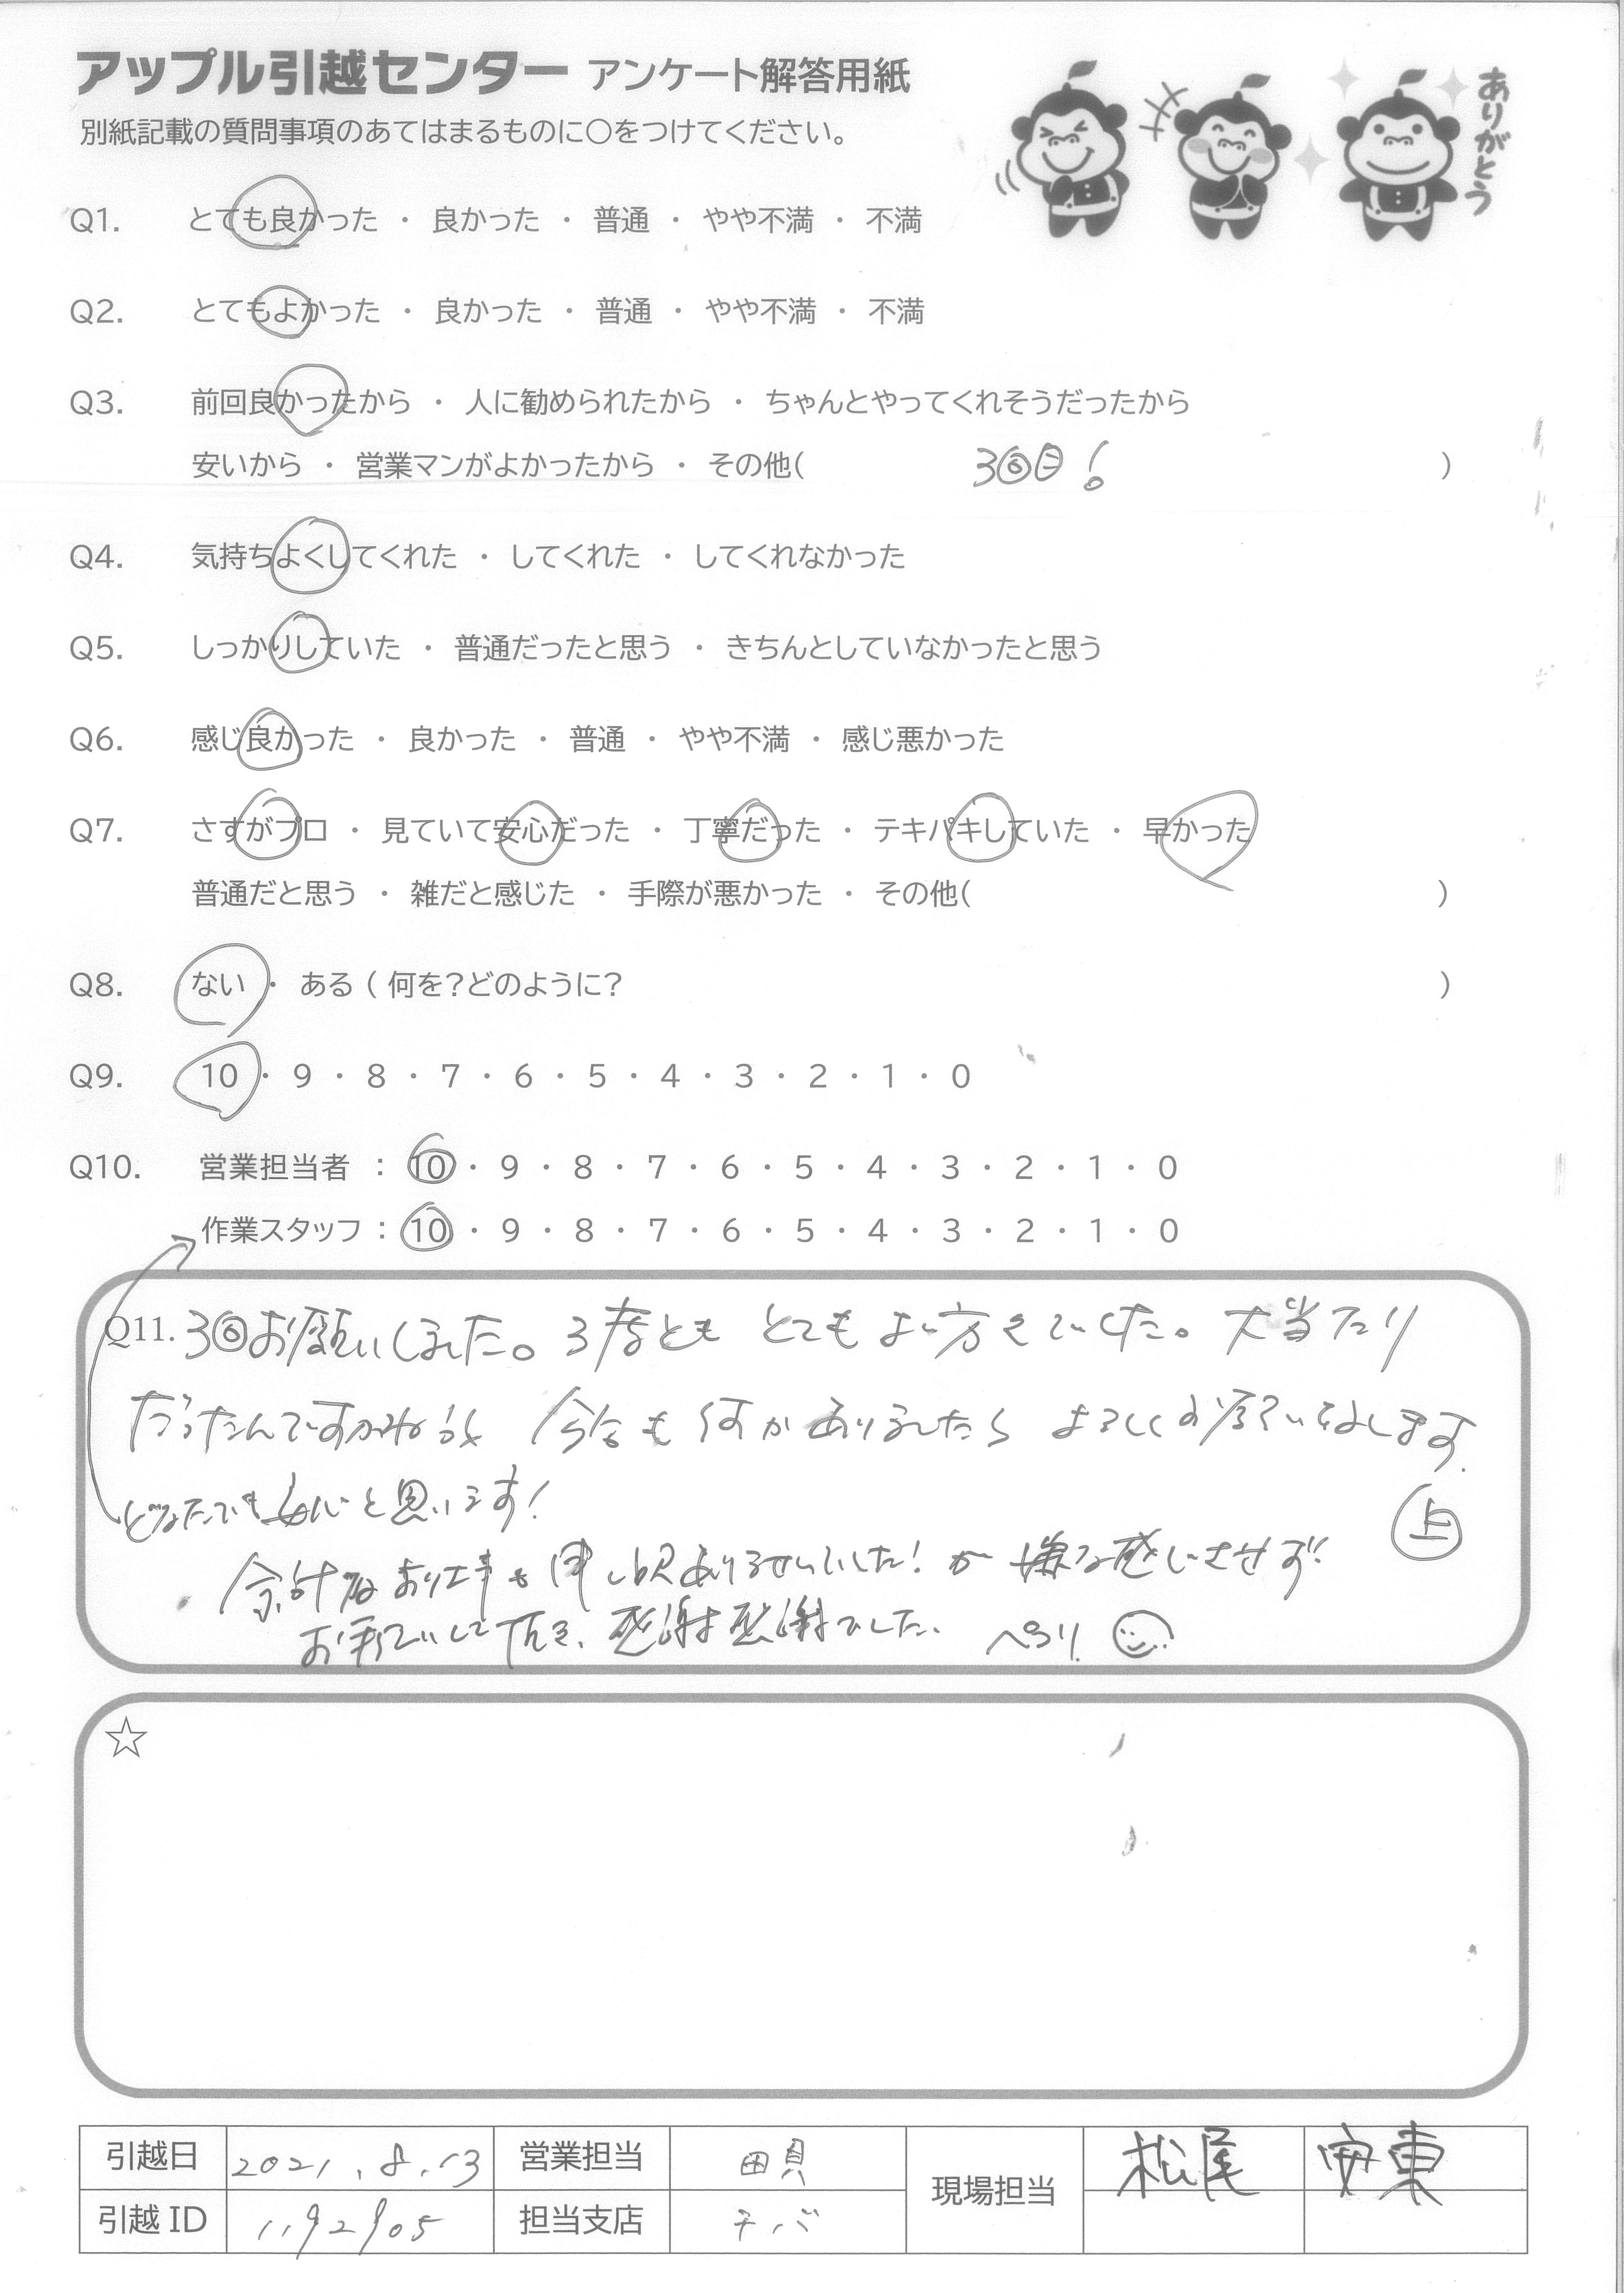 アップル引越センター アンケート解答用紙
別紙記載の質問事項のあてはまるものに○をつけてください。
ありがとう
Q1. とても良かった ・ 良かった ・ 普通 ・ やや不満 ・ 不満
Q2. とてもよかった ・ 良かった ・ 普通 ・ やや不満 ・ 不満
Q3. 前回良かったから ・ 人に勧められたから ・ ちゃんとやってくれそうだったから
安いから ・ 営業マンがよかったから ・ その他( 3回目! )
Q4. 気持ちよくしてくれた ・ してくれた ・ してくれなかった
Q5. しっかりしていた ・ 普通だったと思う ・ きちんとしていなかったと思う
Q6. 感じ良かった ・ 良かった ・ 普通 ・ やや不満 ・ 感じ悪かった
Q7. さすがプロ ・ 見ていて安心だった ・ 丁寧だった ・ テキパキしていた ・ 早かった
普通だと思う ・ 雑だと感じた ・ 手際が悪かった ・ その他( )
Q8. ない ・ ある ( 何を?どのように? )
Q9. 10 ・ 9 ・ 8 ・ 7 ・ 6 ・ 5 ・ 4 ・ 3 ・ 2 ・ 1 ・ 0
Q10. 営業担当者 : 10 ・ 9 ・ 8 ・ 7 ・ 6 ・ 5 ・ 4 ・ 3 ・ 2 ・ 1 ・ 0
作業スタッフ : 10 ・ 9 ・ 8 ・ 7 ・ 6 ・ 5 ・ 4 ・ 3 ・ 2 ・ 1 ・ 0
Q11. 3回お願いしました。3度とも とてもよい方きていました。大当たり
だったんですかね 今後も何かありましたら よろしくお願いいたします.
どなたでも安心と思います!
上
余計なお仕事も申し訳ありませんでした! が 嫌な感じさせず!
お手伝いして頂き、感謝感謝でした. ペコリ
☆
引越日 2021.8.13 営業担当 現場担当 松尾 安東
引越 ID 1192905 担当支店 チバ